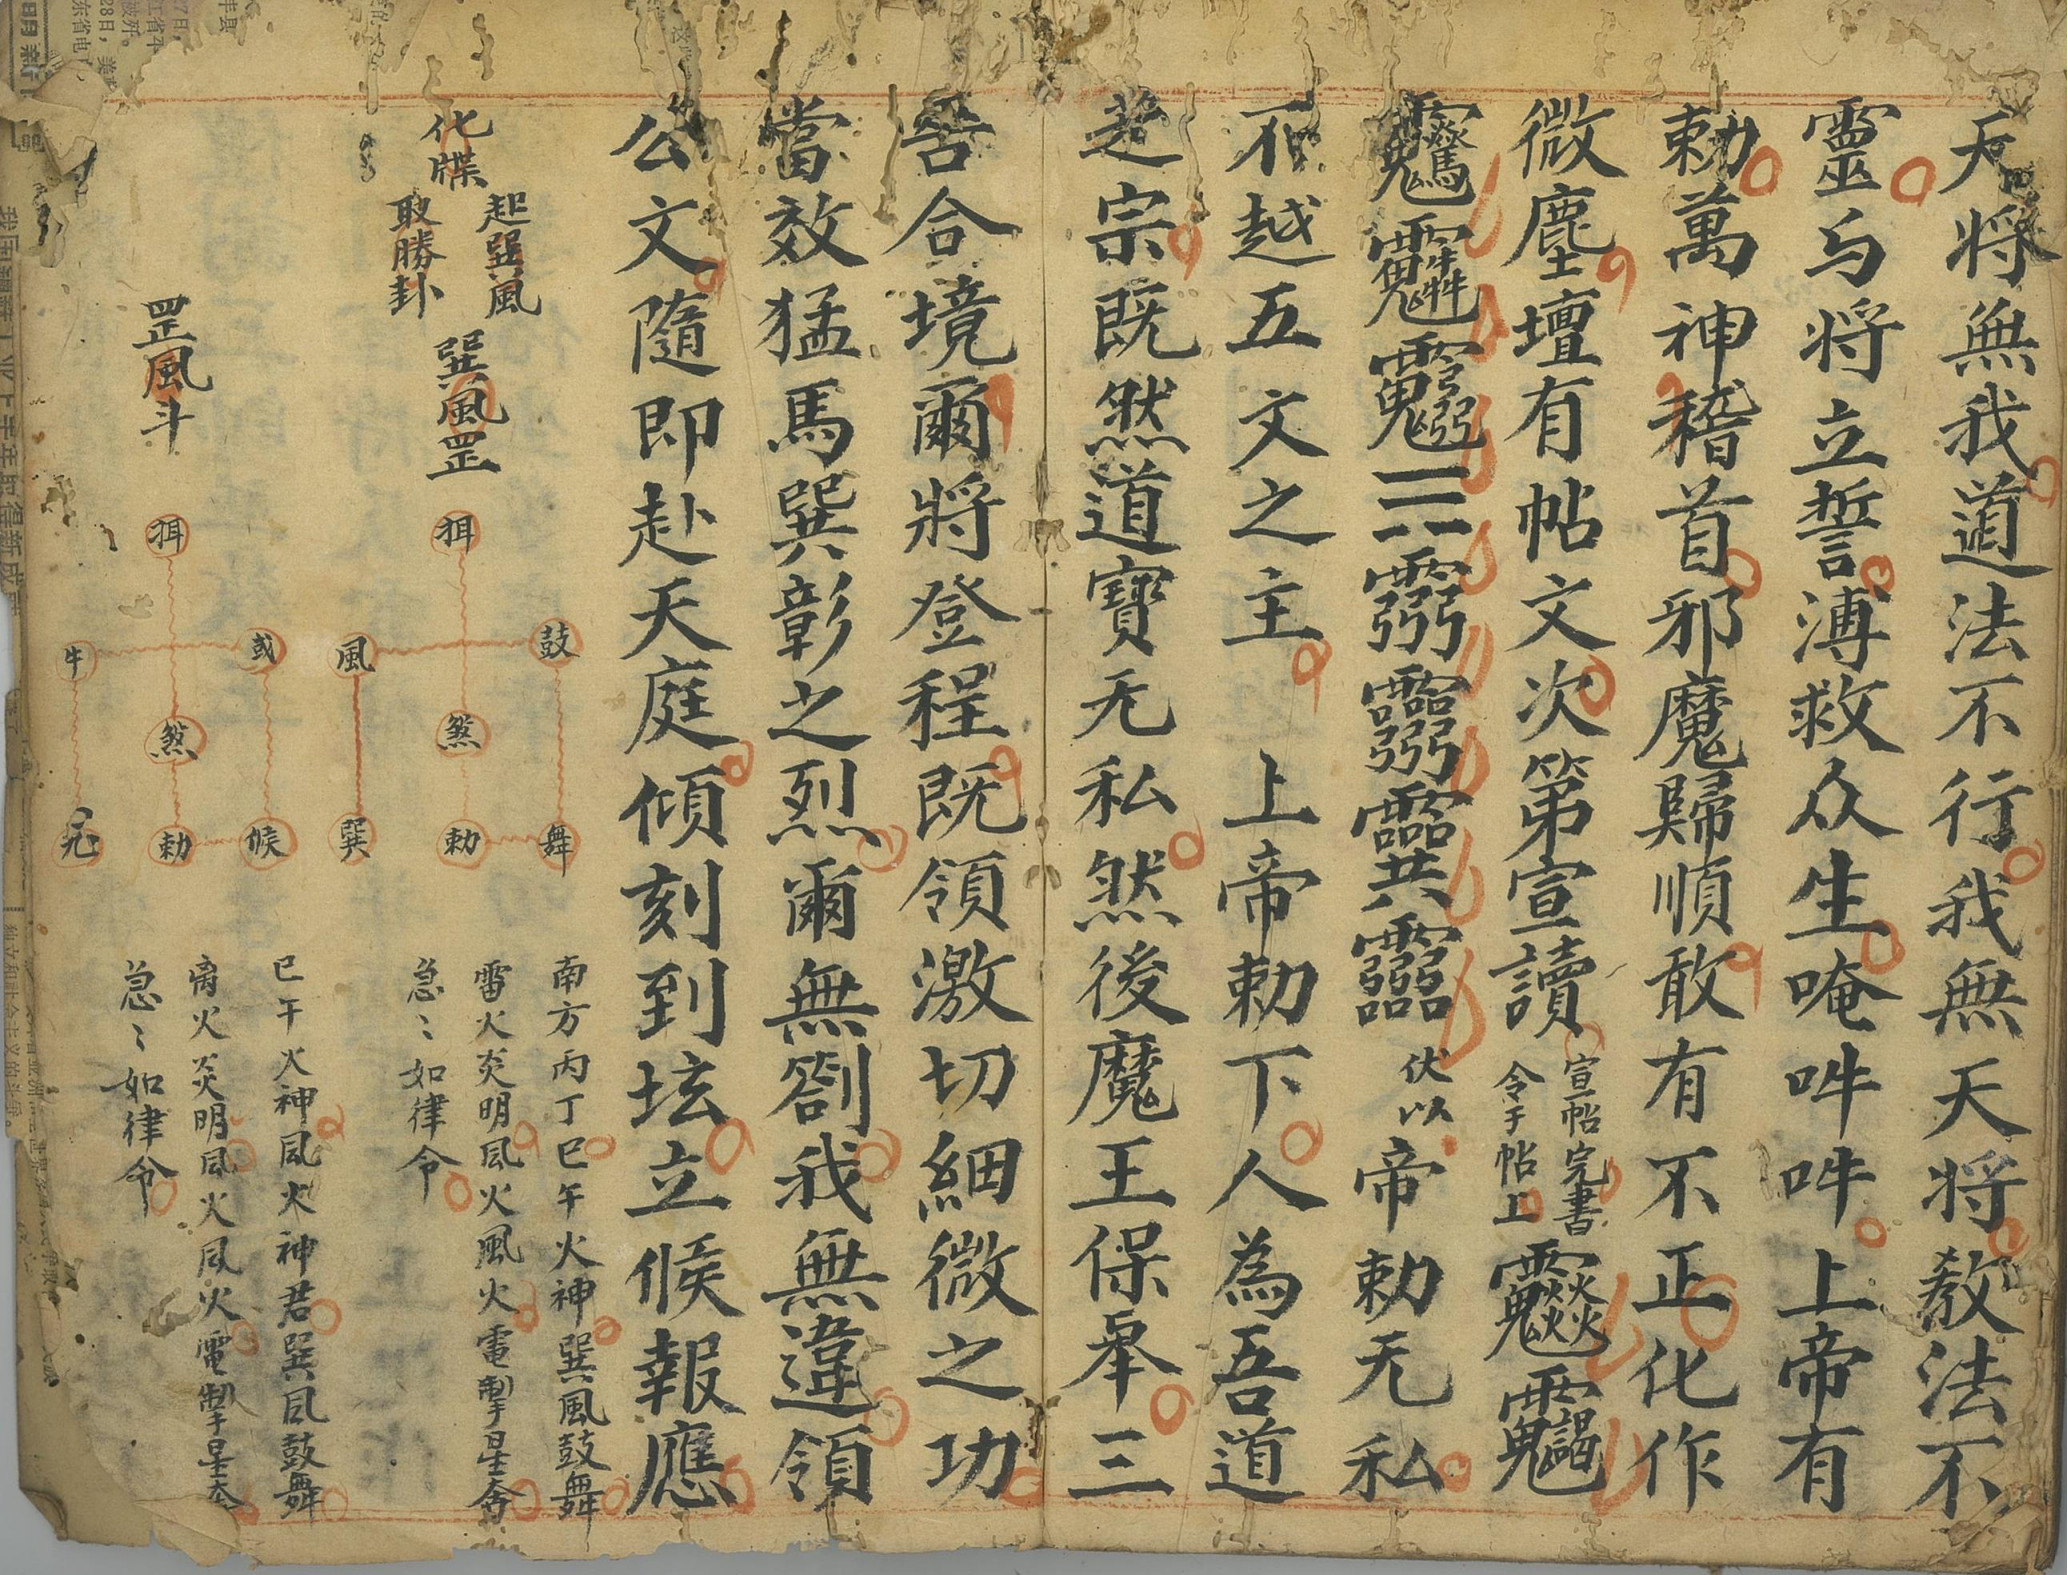 天将無我道法不行我無天将教法不
靈与将立誓溥救众生唵吽吽上帝有
勅萬神稽首邪魔歸順敢有不正化作
微塵壇有帖文次第宣讀
宣帖完書
令于帖上
伏以帝勅无私
不越五文之主上帝勅下人為吾道
之宗既然道寳无私然後魔王保举三
吿合境爾將登程既領激切細微之功
當效猛馬巽彰之烈爾無劄我無違領
公文隨即赴天庭傾刻到坛立候報應
化牒
起巽風
取勝卦
巽風罡
挕
鼓
風
煞
舞
勅
巽
南方丙丁巳午火神巽風鼓舞
雷火炎明風火風火電掣星奔
急〻如律令
罡風斗
挕
或
牛
煞
候
勅
巳午火神風火神君巽風鼓舞
离火炎明風火風火電掣星奔
急〻如律令